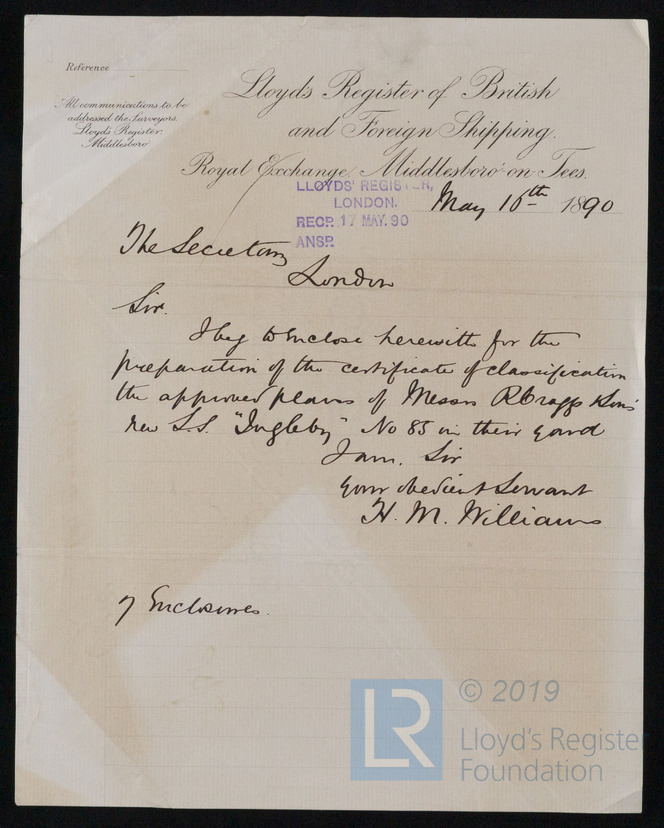 Reference
All communications to be
addressed the Surveyors.
Lloyds Register.
Middlesboro'
Lloyds Register of British
and Foreign Shipping.
Royal Exchange, Middlesboro' on Tees.
LLOYDS' REGISTER,
LONDON.
RECD. 17 MAY. 90
ANSD.
May 16th 1890
The Secretary
London
Sir.
I beg to enclose herewith for the
preparation of the certificate of classification
the approved plans of Messrs R Craggs & Sons
new S.S. "Ingleby" No 85 in their yard
I am, Sir
your obedient Servant
H. M. Williams
7 Enclosures.
© 2019
LR
Lloyd's Register
Foundation